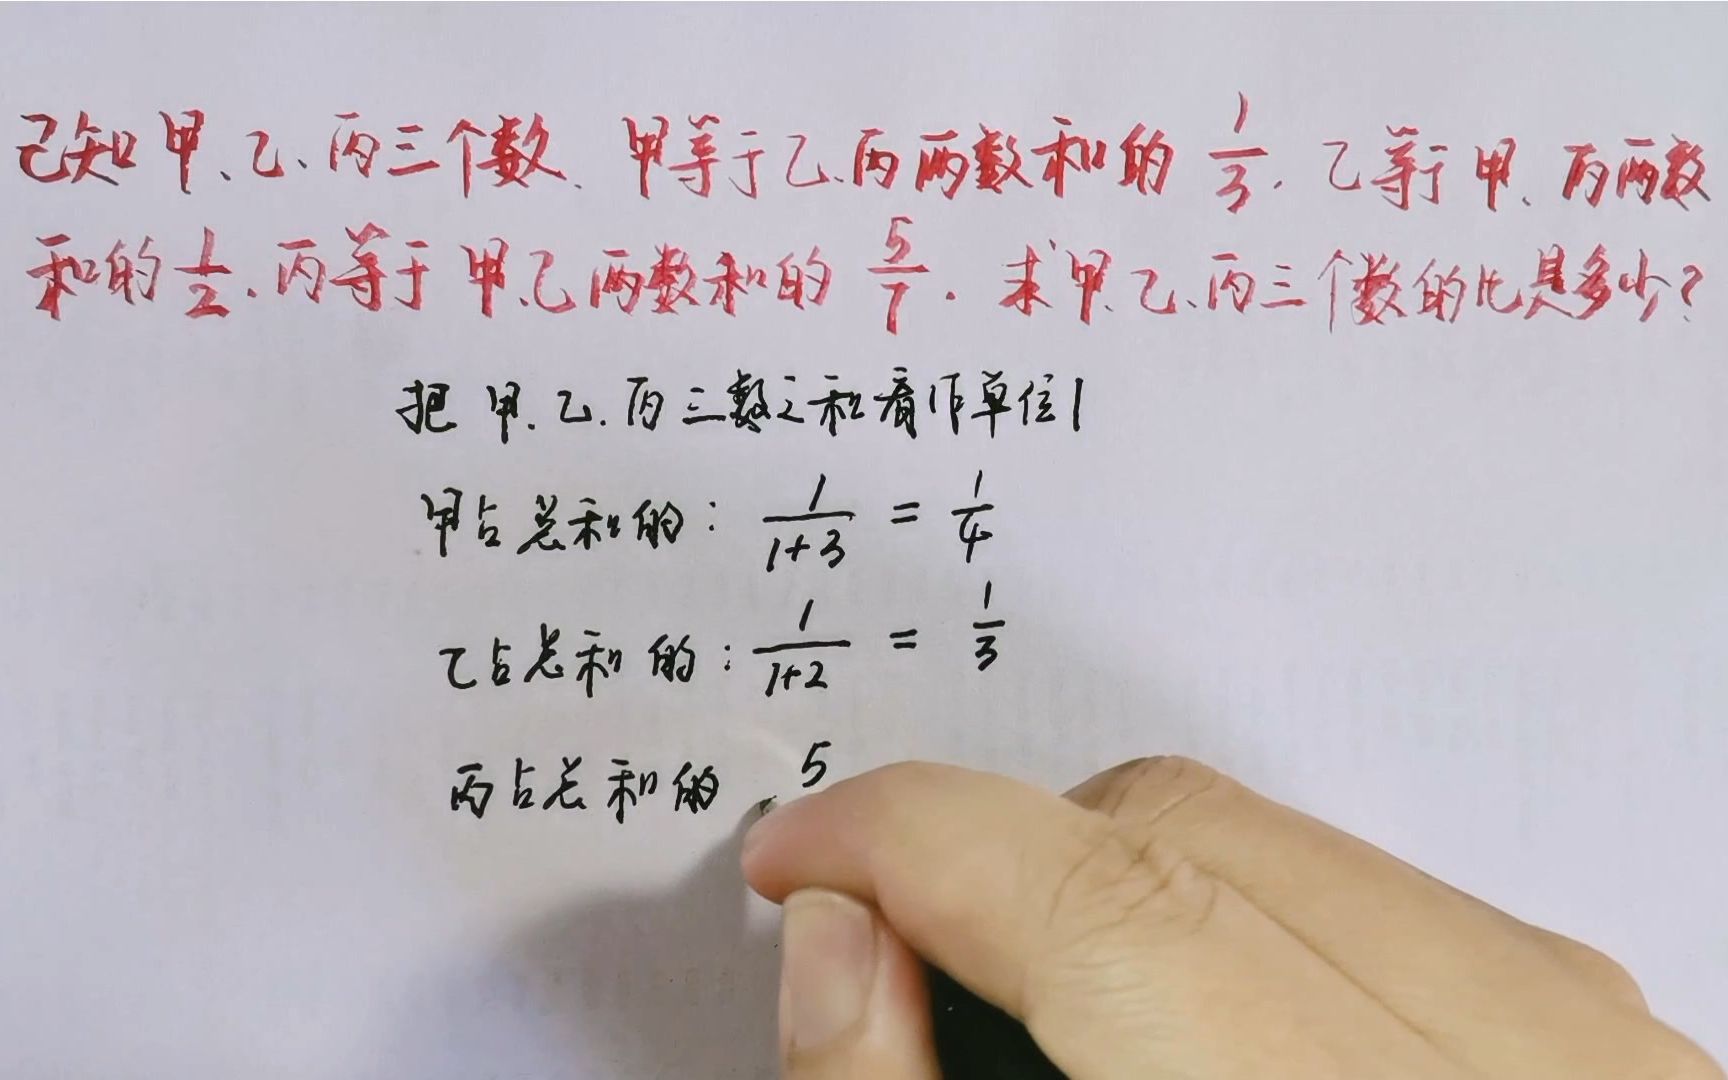 已知甲、乙、丙三个数、甲等于乙、丙两数和的 1/3. 乙等于甲、丙两数
和的 1/2. 丙等于甲、乙两数和的 5/7. 求甲、乙、丙三个数的比是多少?
把甲、乙、丙三数之和看作单位1
甲占总和的: 1/(1+3) = 1/4
乙占总和的: 1/(1+2) = 1/3
丙占总和的 5